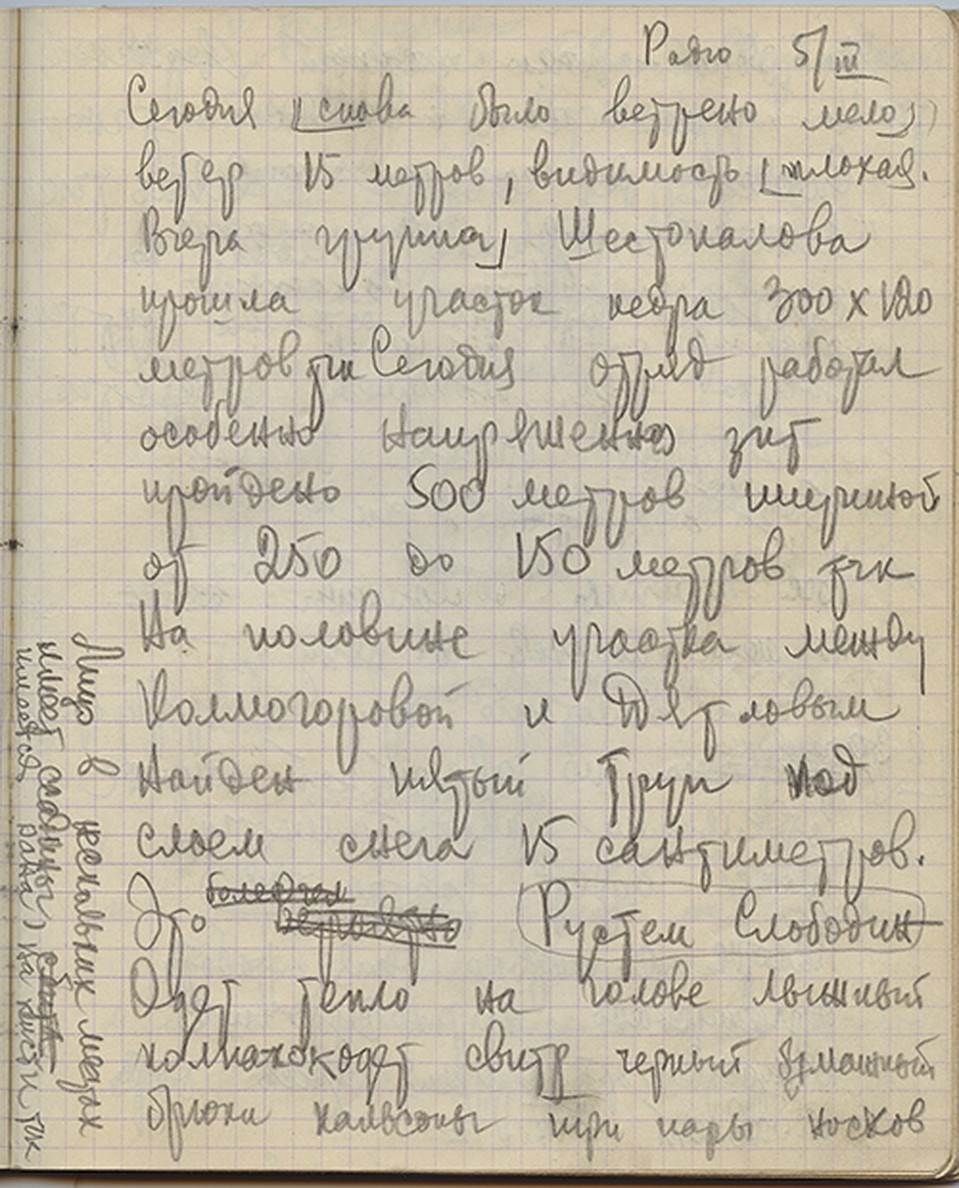 Радио 5/III
Сегодня снова было ветрено мело)
ветер 15 метров, видимость плохая.
Вчера группа Шестопалова
прошла участок кедра 300 х 120
метров тчк Сегодня отряд работал
особенно напряженно зпт
пройдено 500 метров шириной
от 250 до 150 метров тчк
На половине участка между
Колмогоровой и Дятловым
найден пятый труп под
слоем снега 15 сантиметров.
Это Рустем Слободин
Одет тепло на голове лыжный
колпачок одет свитр черный
брюки кальсоны три пары носков
Лицо в нескольких местах
имеет ссадины)
имеется рана) на кисти тчк